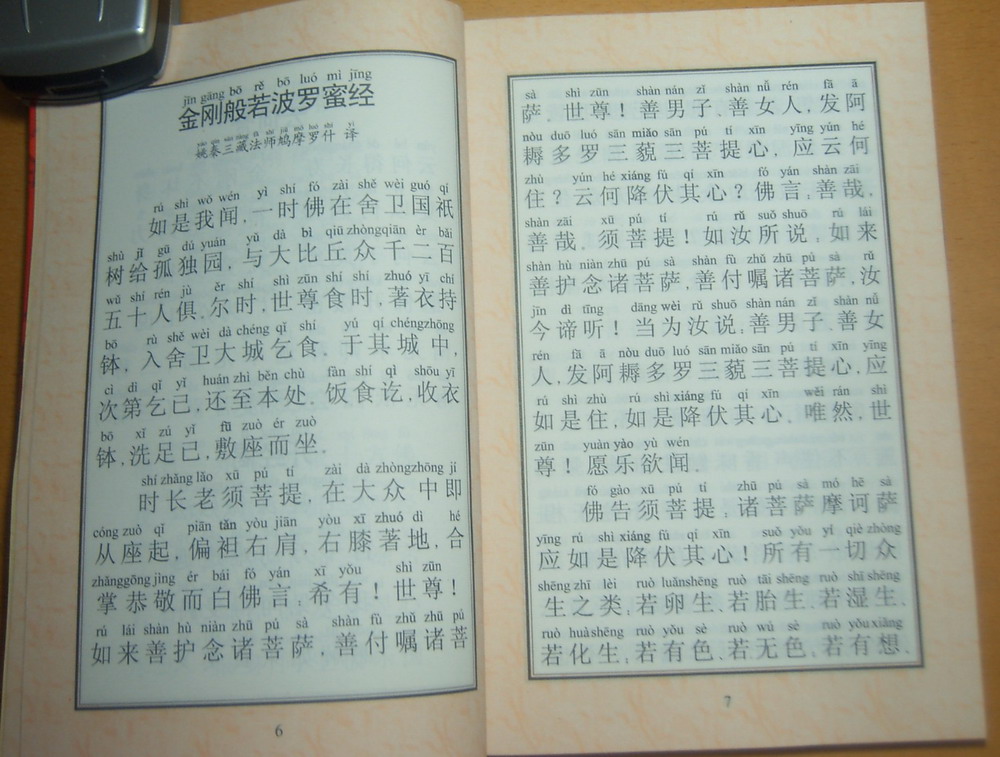 jīn gāng bō rě bō luó mì jīng
金刚般若波罗蜜经
姚秦三藏法师鸠摩罗什 译
rú shì wǒ wén yì shí fó zài shě wèi guó qí
如是我闻,一时佛在舍卫国祇
shù jǐ gū dú yuán yǔ dà bì qiū zhòng qiān èr bǎi
树给孤独园,与大比丘众千二百
wǔ shí rén jù ěr shí shì zūn shí shí zhuó yī chí
五十人俱.尔时,世尊食时,著衣持
bō rù shě wèi dà chéng qǐ shí yú qí chéng zhōng
钵,入舍卫大城乞食.于其城中,
cì dì qǐ yǐ huán zhì běn chù fàn shí qì shōu yī
次第乞已,还至本处.饭食讫,收衣
bō xǐ zú yǐ fū zuò ér zuò
钵,洗足已,敷座而坐.
shí zhǎng lǎo xū pú tí zài dà zhòng zhōng jí
时长老须菩提,在大众中即
cóng zuò qǐ piān tǎn yòu jiān yòu xī zhuó dì hé
从座起,偏袒右肩,右膝著地,合
zhǎng gōng jìng ér bái fó yán xī yǒu shì zūn
掌恭敬而白佛言:希有!世尊!
rú lái shàn hù niàn zhū pú sà shàn fù zhǔ zhū pú
如来善护念诸菩萨,善付嘱诸菩
6
sà shì zūn shàn nán zǐ shàn nǚ rén fā ā
萨.世尊!善男子、善女人,发阿
nòu duō luó sān miǎo sān pú tí xīn yīng yún hé
耨多罗三藐三菩提心,应云何
zhù yún hé xiáng fú qí xīn fó yán shàn zāi
住?云何降伏其心?佛言:善哉,
shàn zāi xū pú tí rú rǔ suǒ shuō rú lái
善哉.须菩提!如汝所说,如来
shàn hù niàn zhū pú sà shàn fù zhǔ zhū pú sà rǔ
善护念诸菩萨,善付嘱诸菩萨,汝
jīn dì tīng dāng wèi rǔ shuō shàn nán zǐ shàn nǚ
今谛听!当为汝说:善男子、善女
rén fā ā nòu duō luó sān miǎo sān pú tí xīn yīng
人,发阿耨多罗三藐三菩提心,应
rú shì zhù rú shì xiáng fú qí xīn wěi rán shì
如是住,如是降伏其心.唯然,世
zūn yuàn yào yù wén
尊!愿乐欲闻.
fó gào xū pú tí zhū pú sà mó hē sà
佛告须菩提,诸菩萨摩诃萨
yīng rú shì xiáng fú qí xīn suǒ yǒu yí qiè zhòng
应如是降伏其心!所有一切众
shēng zhī lèi ruò luǎn shēng ruò tāi shēng ruò shī shēng
生之类:若卵生、若胎生、若湿生、
ruò huà shēng ruò yǒu sè ruò wú sè ruò yǒu xiǎng
若化生;若有色、若无色;若有想、
7